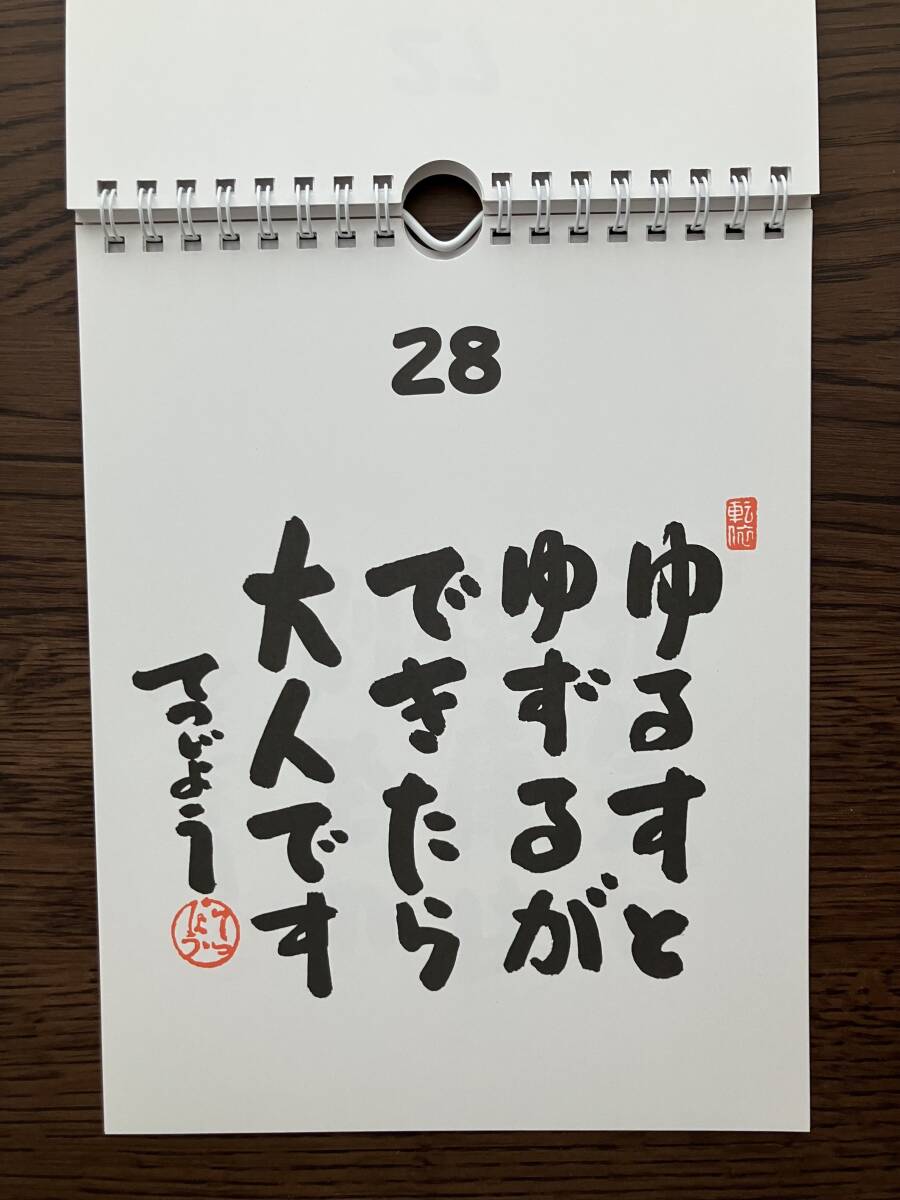 28
ゆるすと
ゆずるが
できたら
大人です
てつじょう
転依